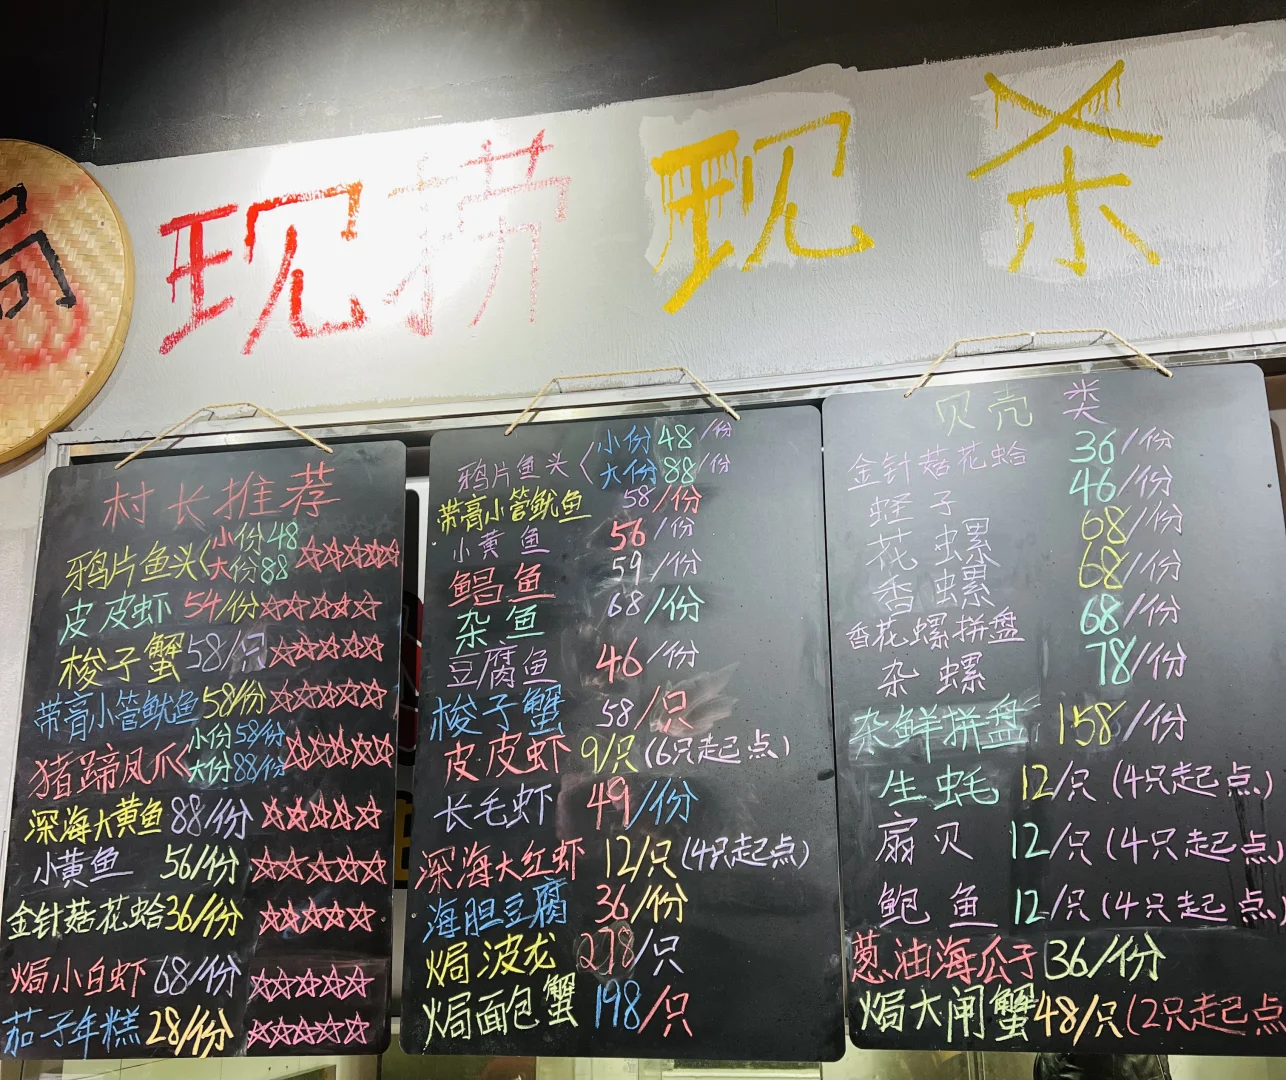 焗
现捞现杀
村长推荐
鸦片鱼头 小份48 ☆☆☆☆☆
大份88
皮皮虾 54/份 ☆☆☆☆☆
梭子蟹 58/只 ☆☆☆☆☆
带膏小管鱿鱼 58/份 ☆☆☆☆☆
猪蹄凤爪 小份58/份 ☆☆☆☆☆
大份88/份
深海大黄鱼 88/份 ☆☆☆☆☆
小黄鱼 56/份 ☆☆☆☆☆
金针菇花蛤 36/份 ☆☆☆☆☆
焗小白虾 68/份 ☆☆☆☆☆
茄子年糕 28/份 ☆☆☆☆☆
鸦片鱼头 小份48/份
大份88/份
带膏小管鱿鱼 58/份
小黄鱼 56/份
鲳鱼 59/份
杂鱼 68/份
豆腐鱼 46/份
梭子蟹 58/只
皮皮虾 9/只(6只起点)
长毛虾 49/份
深海大红虾 12/只(4只起点)
海胆豆腐 36/份
焗波龙 278/只
焗面包蟹 198/只
贝壳类
金针菇花蛤 36/份
蛏子 46/份
花螺 68/份
香螺 68/份
香花螺拼盘 68/份
杂螺 78/份
杂鲜拼盘 158/份
生蚝 12/只(4只起点)
扇贝 12/只(4只起点)
鲍鱼 12/只(4只起点)
葱油海公子 36/份
焗大闸蟹 48/只(2只起点